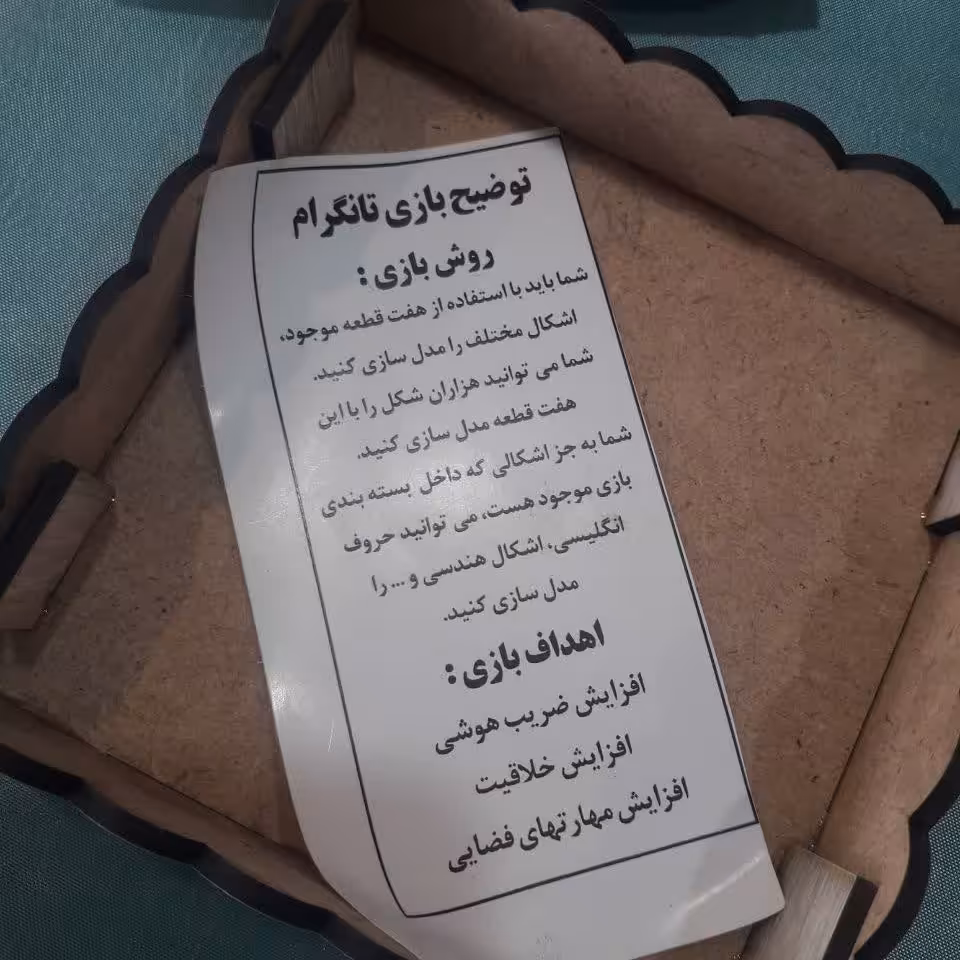 توضیح بازی تانگرام
روش بازی :
شما باید با استفاده از هفت قطعه موجود،
اشکال مختلف را مدل سازی کنید.
شما می توانید هزاران شکل را با این
هفت قطعه مدل سازی کنید.
شما به جز اشکالی که داخل بسته بندی
بازی موجود هست، می توانید حروف
انگلیسی، اشکال هندسی و ... را
مدل سازی کنید.
اهداف بازی :
افزایش ضریب هوشی
افزایش خلاقیت
افزایش مهارتهای فضایی